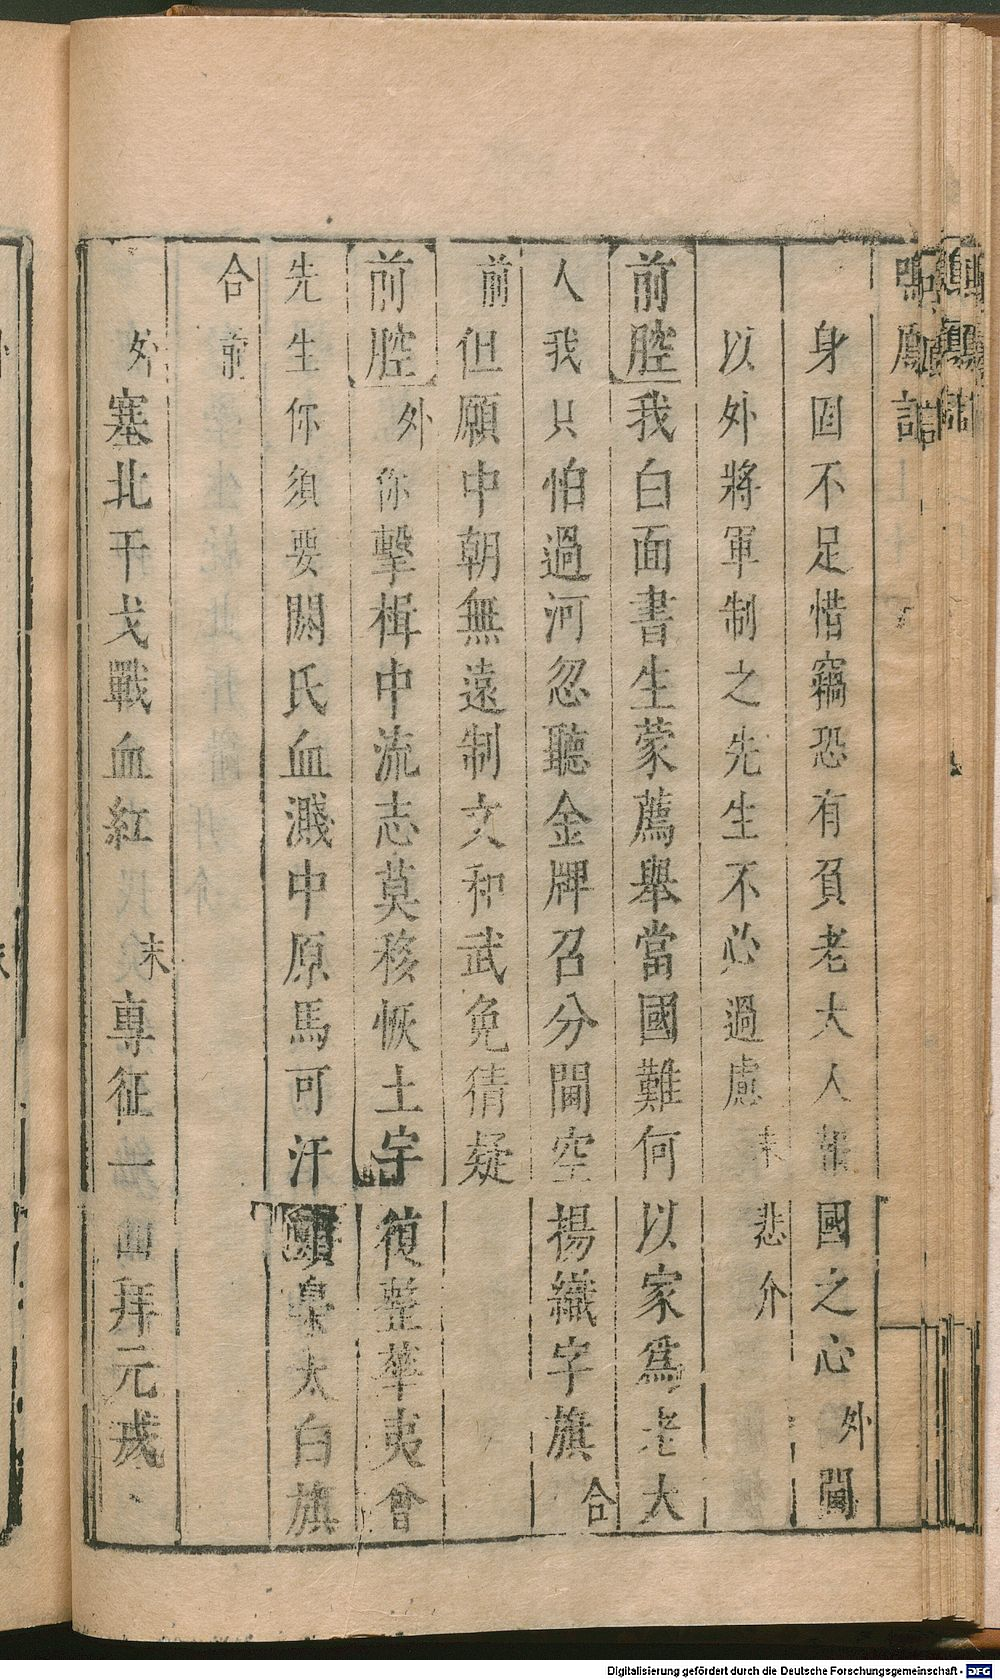 身固不足惜竊恐有負老大人報國之心外閫
以外將軍制之先生不必過慮末悲介
前腔我白面書生蒙薦舉當國難何以家爲老大
人我只怕過河忽聽金牌召分閫空揚織字旗合
前但願中朝無遠制文和武免猜疑
前腔外你擊楫中流志莫移恢土宇復整華夷會
先生你須要閼氏血濺中原馬可汗頭梟太白旗
合前
外塞北干戈戰血紅末專征一出拜元戎
Digitalisierung gefördert durch die Deutsche Forschungsgemeinschaft - DFG